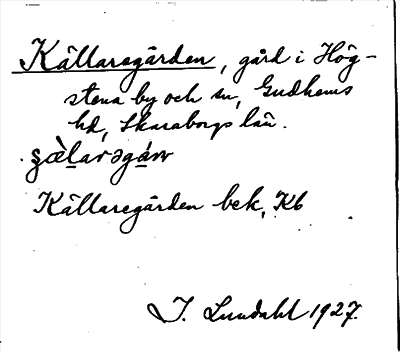 Källaregården, gård i Hög-
stena by och sn, Gudhems
hd, Skaraborgs län.
Källaregården bek, Kb
I. Lundahl 1927.